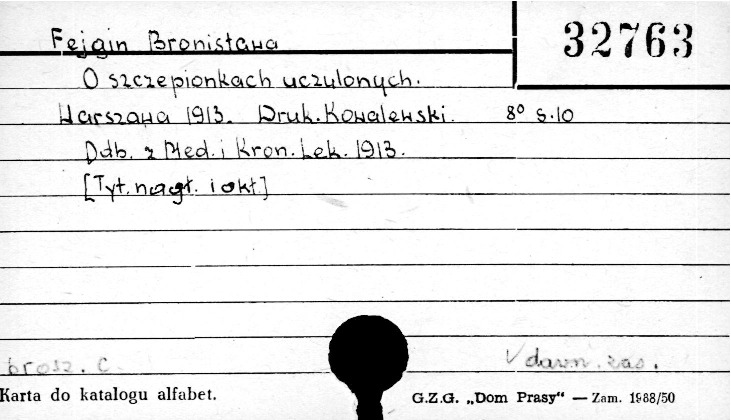 Fejgin Bronisława
32763
O szczepionkach uczulonych.
Warszawa 1913. Druk. Kowalewski. 8° s. 10
Odb. z Med. i Kron. Lek. 1913.
[Tyt. nagł. i okł.]
brosz. c.
√ dawn. zas.
Karta do katalogu alfabet.
G.Z.G. „Dom Prasy“ — Zam. 1988/50